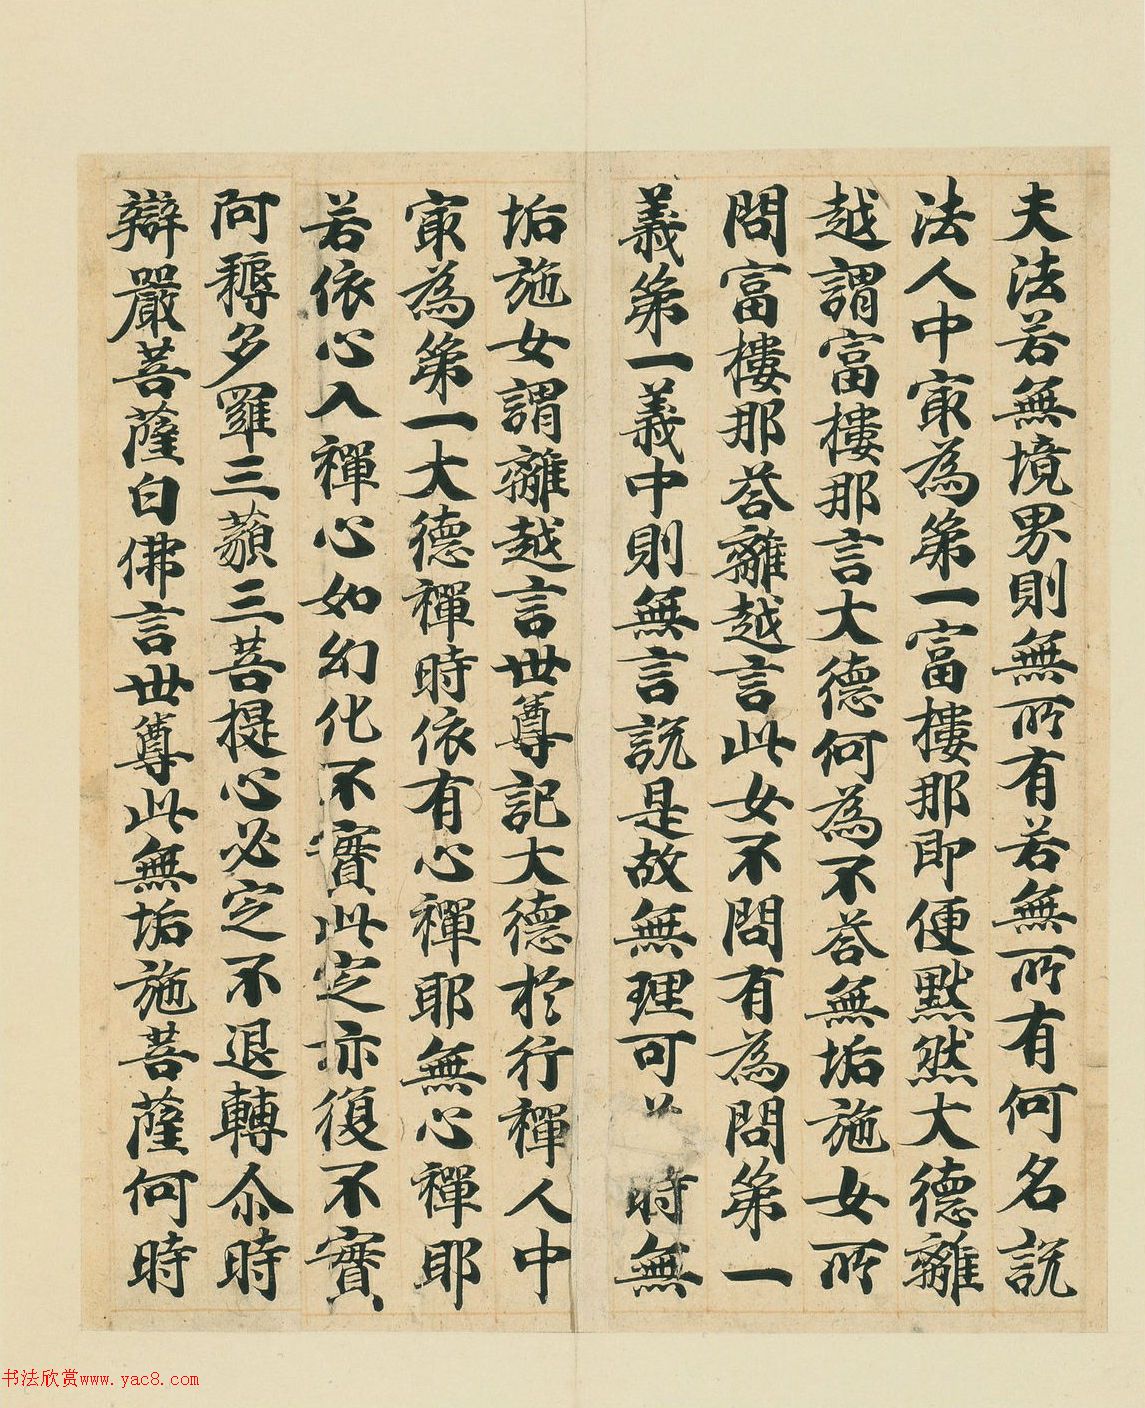 夫法若無境界則無所有若無所有何名說
法人中㝡為第一富樓那即便默然大德離
越謂富樓那言大德何為不荅無垢施女所
問富樓那荅離越言此女不問有為問第一
義第一義中則無言說是故無理可 時無
垢施女謂離越言世尊記大德於行禪人中
㝡為第一大德禪時依有心禪耶無心禪耶
若依心入禪心如幻化不實此定亦復不實
阿耨多羅三藐三菩提心必定不退轉尒時
辯嚴菩薩白佛言世尊此無垢施菩薩何時
书法欣赏www.yac8.com